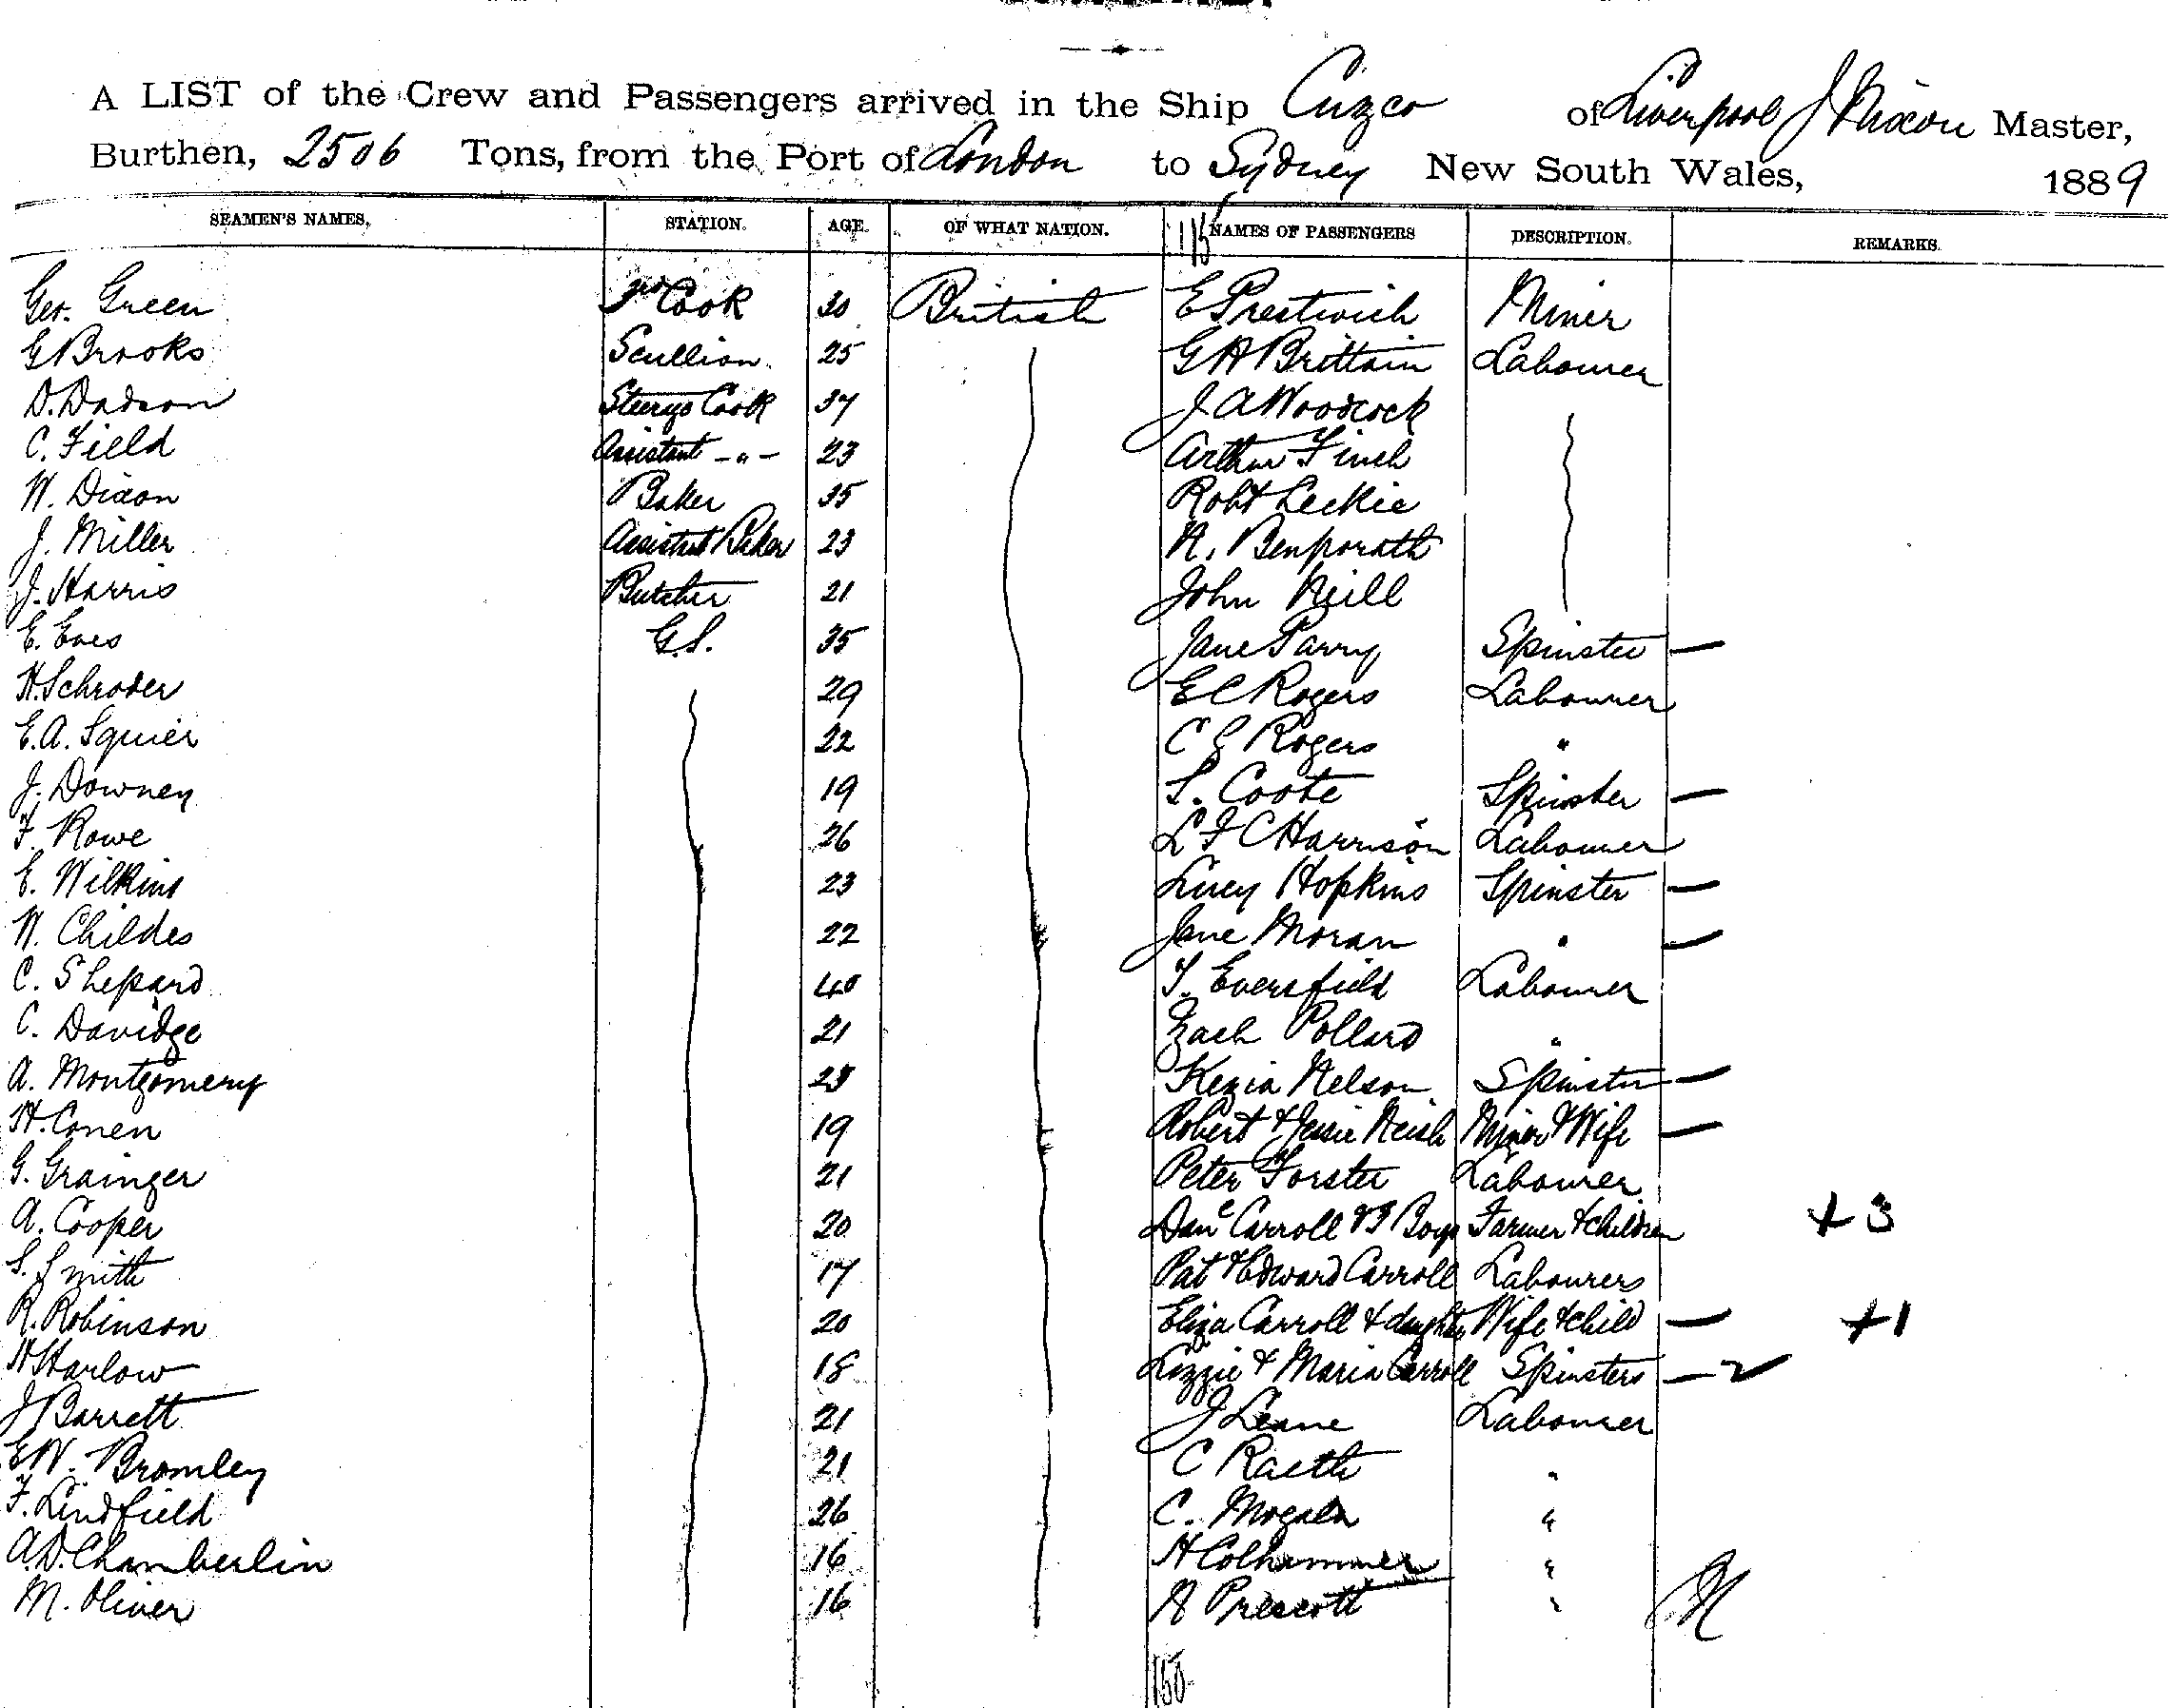 A LIST of the Crew and Passengers arrived in the Ship Cuzco of Liverpool J Nixon Master,
Burthen, 2506 Tons, from the Port of London to Sydney New South Wales, 1889
SEAMEN'S NAMES, STATION. AGE. OF WHAT NATION. NAMES OF PASSENGERS DESCRIPTION. REMARKS.
115
Geo. Green Cook 30 British E Prestwich Miner
G Brooks Scullion 25 G H Brittain Labourer
D. Dadson Steerge Cook 37 J A Woodcock
C. Field Assistant -"- 23 Arthur Finch
W. Dixon Baker 35 Robt Leckie
J. Miller Assistant Baker 23 N. Benporath
J. Harris Butcher 21 John Neill
E. Eves G.S. 35 Jane Parry Spinster —
H. Schroder 29 E C Rogers Labourer
E.A. Squier 22 C E Rogers "
J. Downey 19 S. Coote Spinster —
F. Rowe 26 L F C Harrison Labourer
E. Wilkins 23 Lucy Hopkins Spinster —
W. Childes 22 Jane Moran " —
C. Shepard 40 T. Eversfield Labourer
C. Davidge 21 Zach Pollard "
A. Montgomery 23 Kezia Nelson Spinster —
H. Conen 19 Robert & Jessie Neish Miner & Wife —
G. Grainger 21 Peter Forster Labourer
A. Cooper 20 Dan Carroll & 3 Boys Farmer & children + 3
S. Smith 17 Pat & Edward Carroll Labourers
R. Robinson 20 Eliza Carroll & daughter Wife & child — +1
H Harlow 18 Lizzie & Maria Carroll Spinsters — 2
J Barrett 21 J Leane Labourer
E W. Bromley 21 C Raeth "
F. Lindfield 26 C. Mogala "
A.D. Chamberlin 16 H Colhammer "
M. Oliver 16 N Prescott "
150